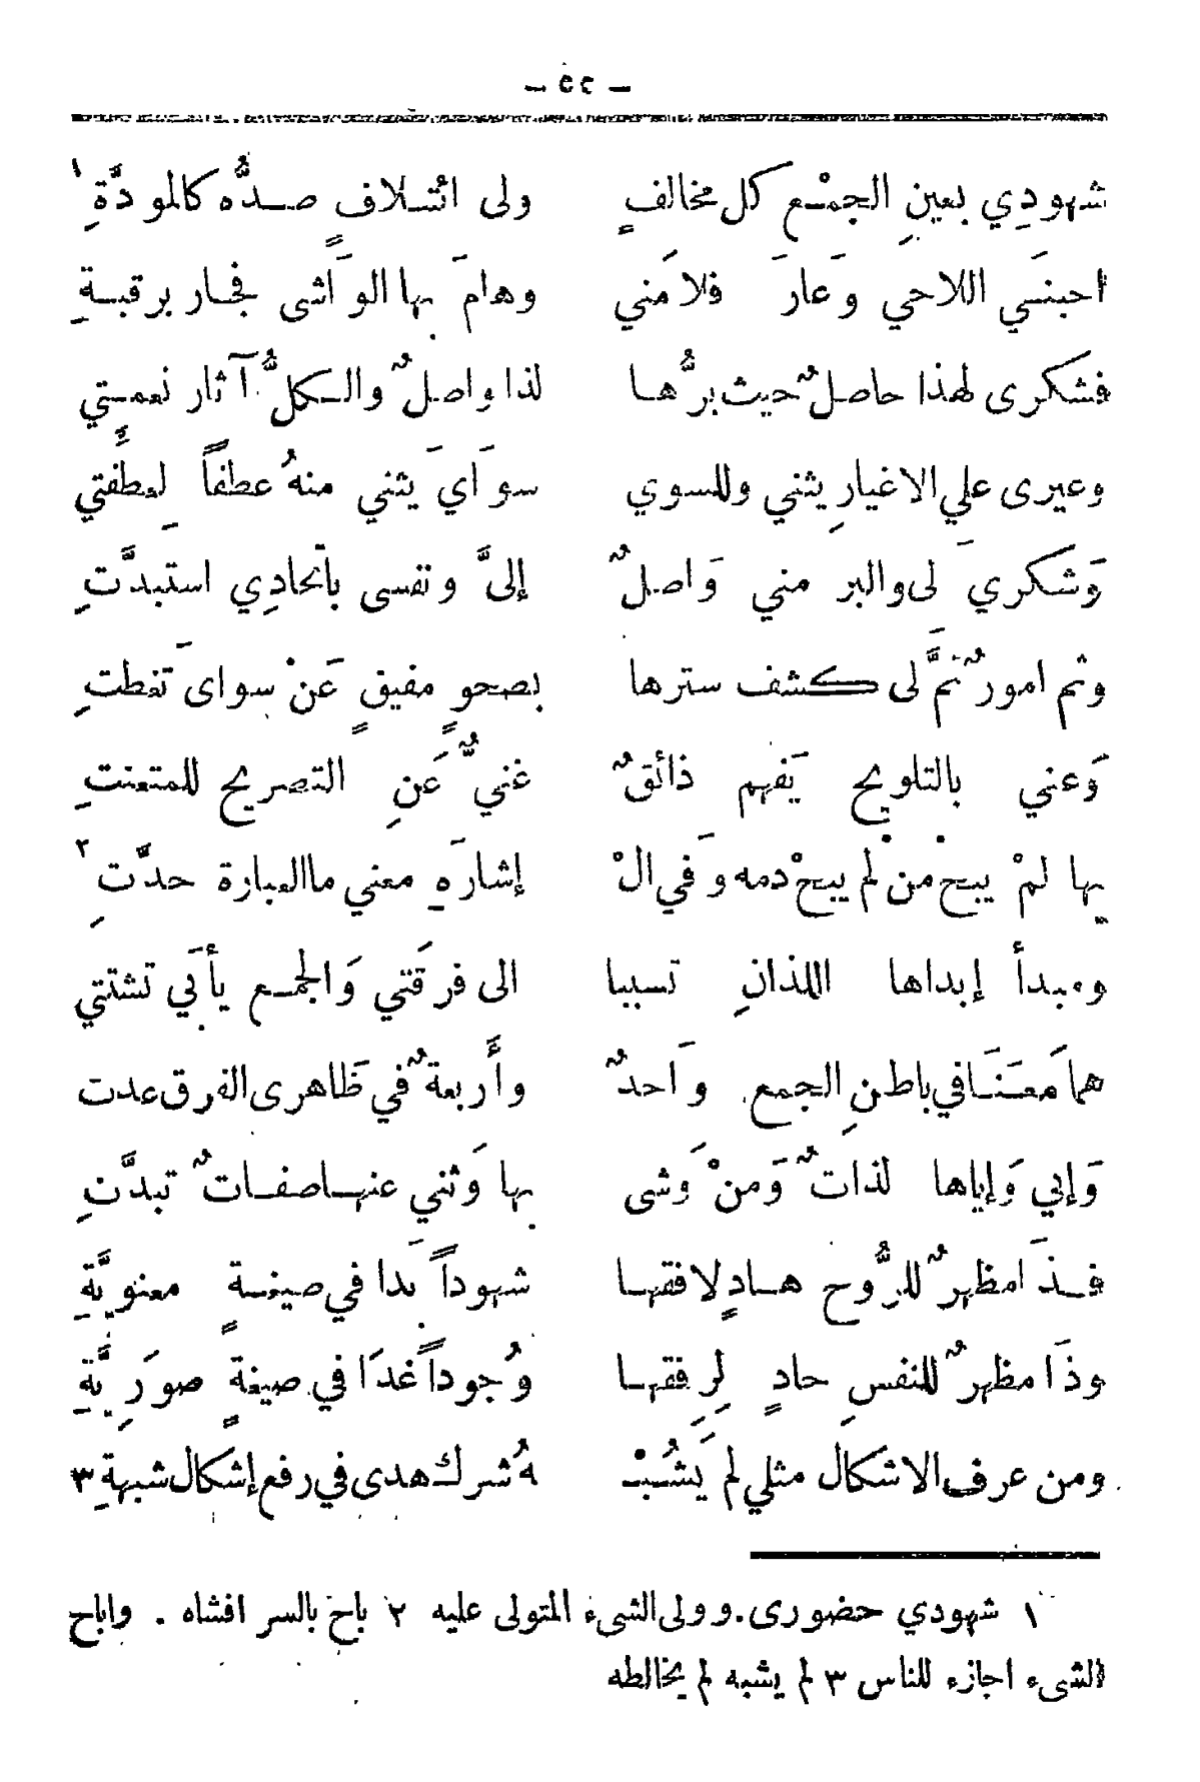 — ٥٢ —
شهودِي بعينِ الجمْع كل مخالفٍ ولى ائتلافٍ صدُّه كالمودَّةِ ١
احبنَي اللاحي وَعارَ فلامَني وهامَ بها الوَاشى فجار برقبةِ
فشكرى لهذا حاصلٌ حيث برُّها لذا واصلٌ والكلُّ آثار نعمتي
وغيرى علي الاغيارِ يثني وللسوي سوَايَ يثني منهُ عطفاً لِعطفتي
وَشكري لى والبر مني وَاصلٌ إلىَّ ونفسى باتّحادِي استبدَّتِ
وثم امورٌ تمَّ لى كشف سترها بصحوٍ مفيقٍ عَنْ سواىَ تغطتِ
وَعني بالتلويح يَفهم ذائقٌ غنيٌّ عَنِ التصريح للمتعنتِ
بها لمْ يبحْ منْ لم يبحْ دمه وَفي الْ إشارَةِ معني ما العبارة حدَّتِ ٢
ومبدأ إبداها اللذانِ تسببا الى فرقَتي وَالجمع يأبَي تشتتي
هما مَعَنَا في باطنِ الجمع وَاحدٌ وأَربعةٌ في ظَاهرى الفرق عدت
وَإني وَإياها لذاتٌ وَمنْ وَشى بها وَثني عنها صفاتٌ تبدَّتِ
فذَا مظهرٌ للرُّوح هادٍ لافقها شهوداً بَدا في صيغةٍ معنويَّةِ
وذَا مظهرٌ للنفسِ حادٍ لِرِفقها وُجوداً غدَا في صيغةٍ صورَيَّةِ
ومن عرف الاشكال مثلي لم يَشُبْ هُ شرك هدى في رفع إشكال شبهةِ ٣
١ شهودي حضورى. وولى الشىء المتولى عليه ٢ باح بالسر افشاه . واباح
الشىء اجازه للناس ٣ لم يشبه لم يخالطه